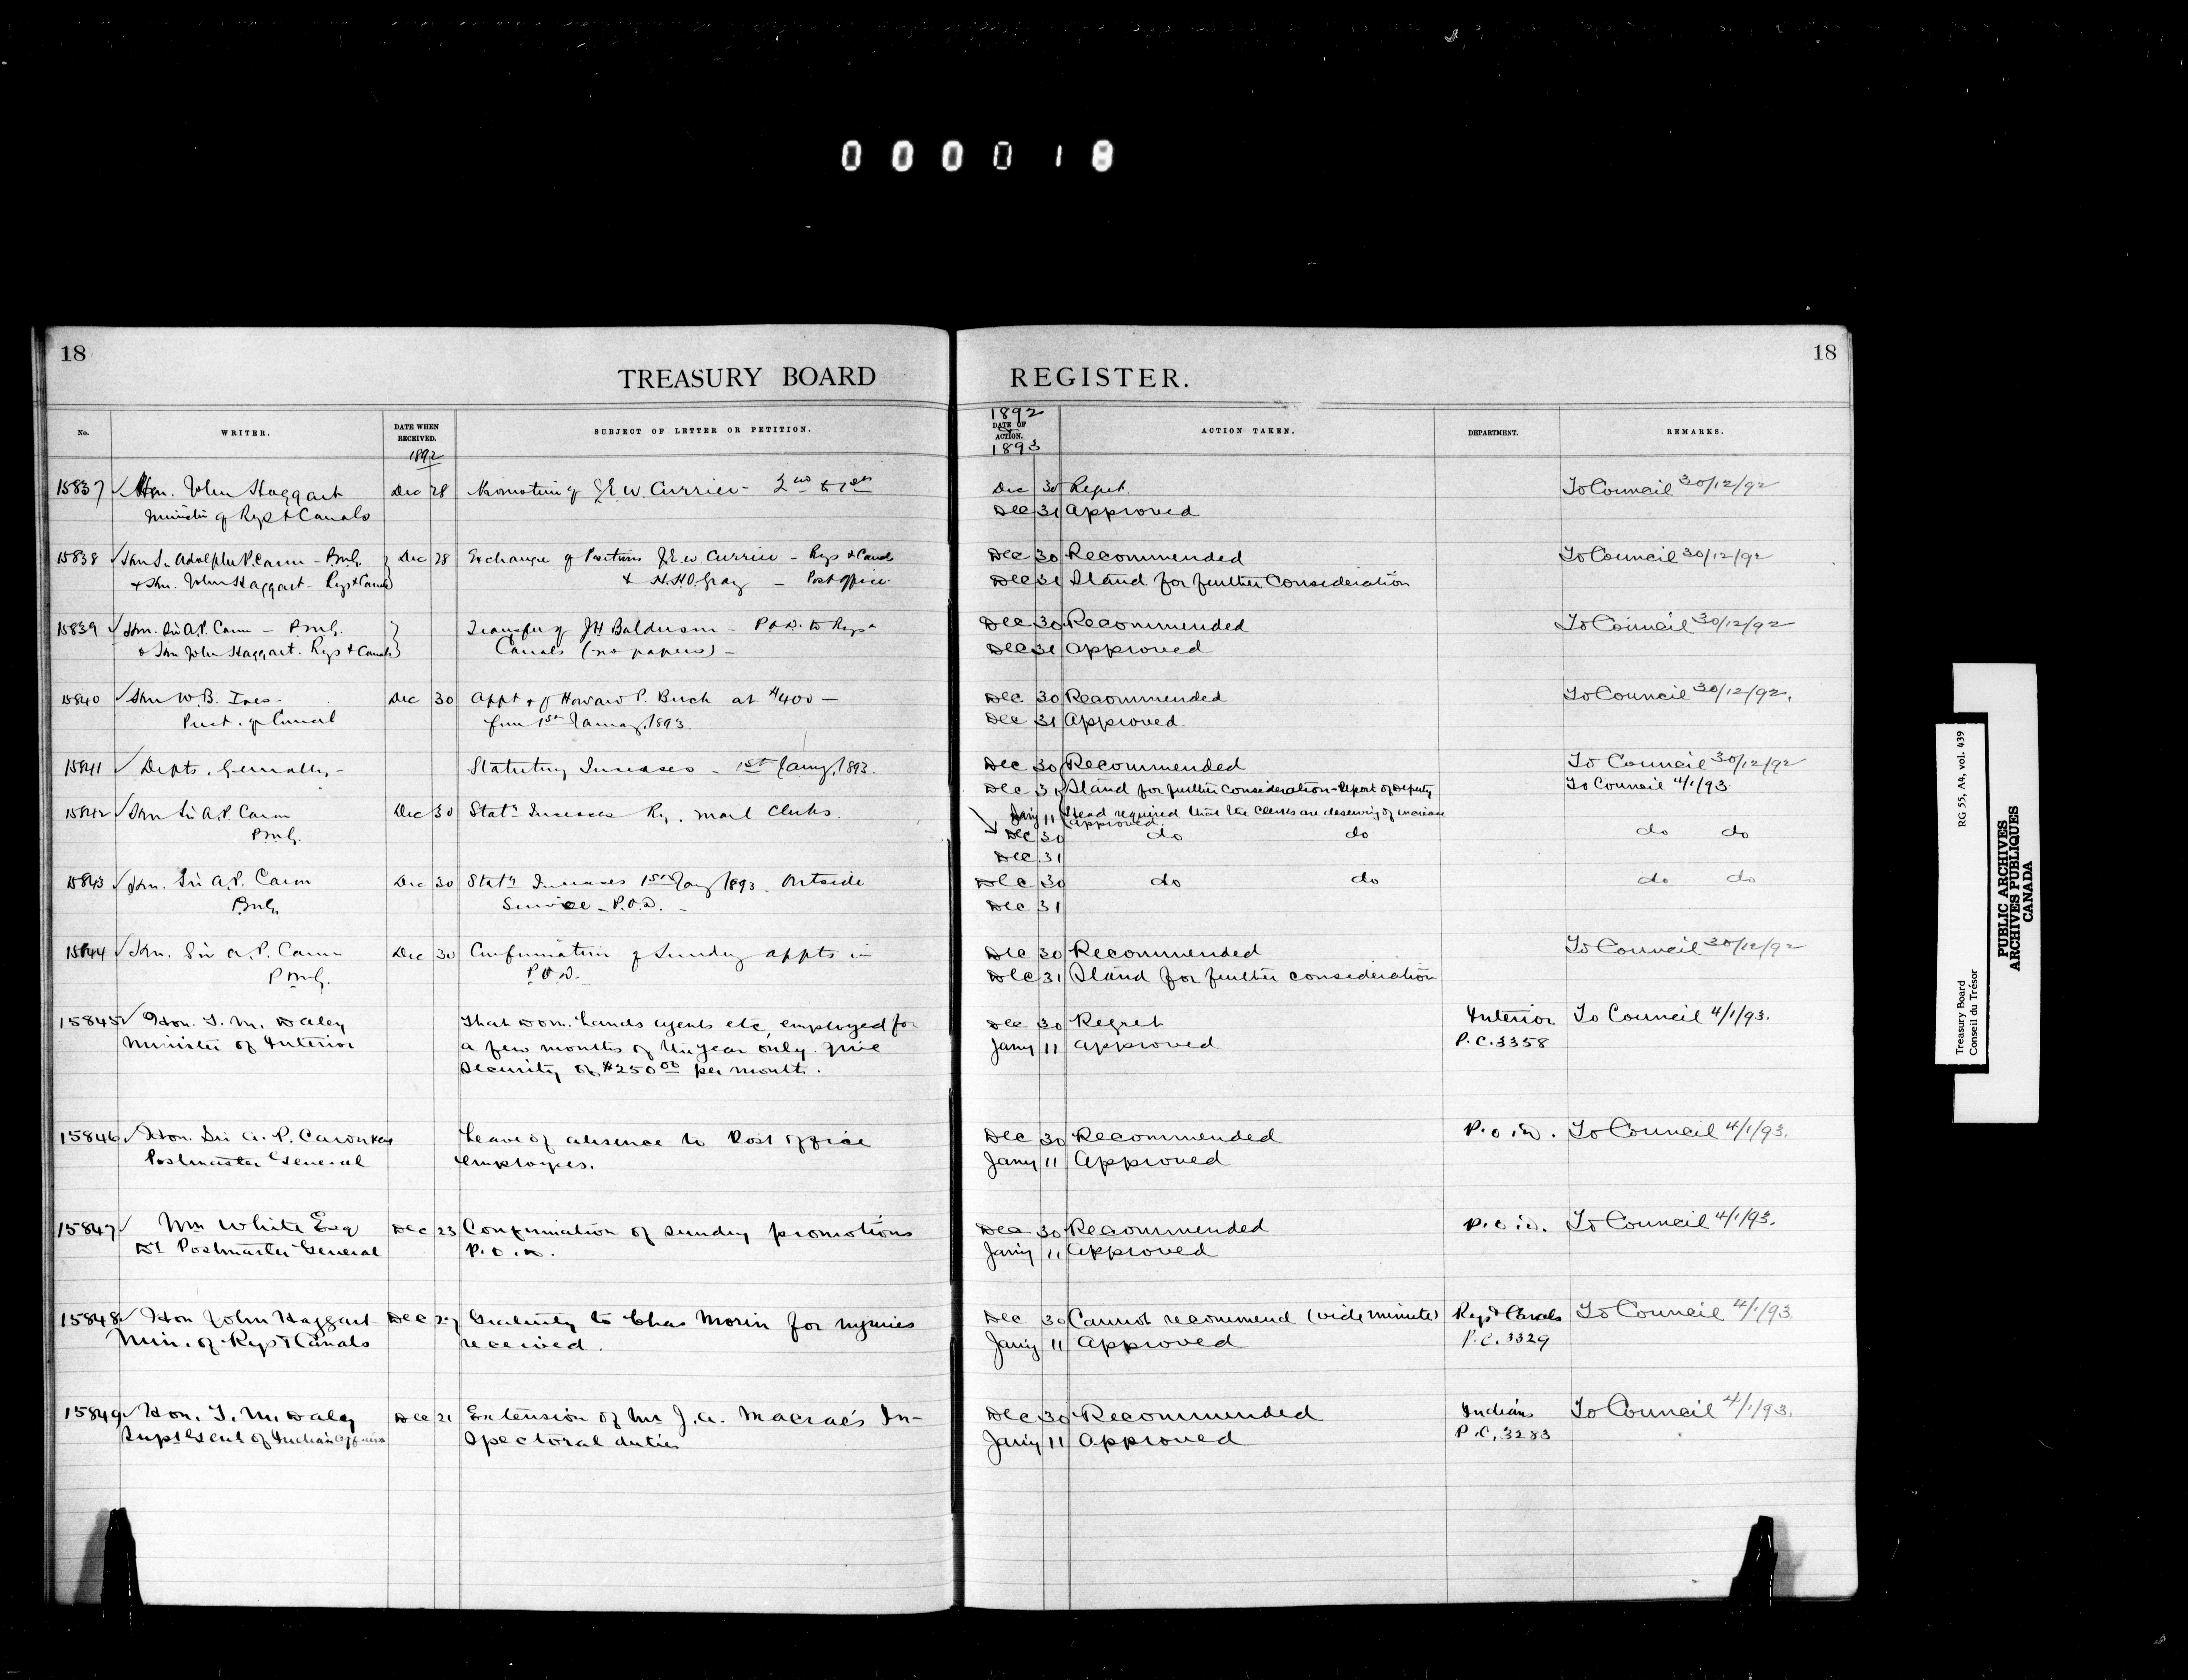 000018
18
TREASURY BOARD
No. WRITER. DATE WHEN RECEIVED. 1892 SUBJECT OF LETTER OR PETITION.
15837 ✓ Hon. John Haggart Dec 28 Promotion of J.E.W. Currier - 2nd to 1st
Minister of Rys & Canals
15838 ✓ Hon Sir Adolphe P. Caron - P.M.G. } Dec 28 Exchange of Positions J.E.W. Currier - Rys & Canals
& Hon. John Haggart - Rys & Canals } & H.H.O. Gray - Post office
15839 ✓ Hon. Sir A.P. Caron - P.M.G. } Transfer of J H Balderson - P.O.D. to Rys &
& Hon John Haggart. Rys & Canals } Canals (no papers) -
15840 ✓ Hon W.B. Ives - Dec 30 Appt of Howard P. Burch at $400 -
Prest. of Council from 1st January 1893.
15841 ✓ Depts. Generally - Statutory Increases - 1st Jany 1893.
15842 ✓ Hon Sir A.P. Caron Dec 30 Staty Increases Ry. Mail Clerks.
P.M.G.
15843 ✓ Hon. Sir A.P. Caron Dec 30 Staty Increases 1st Jany 1893. Outside
P.M.G. Service - P.O.D. -
15844 ✓ Hon. Sir A.P. Caron Dec 30 Confirmation of Sundry appts in
P.M.G. P.O.D.
15845 ✓ Hon. T. M. Daley That Dom. Lands agents etc, employed for
Minister of Interior a few months of the year only give
Security of $250 00 per month.
15846 ✓ Hon. Sir A. P. Caron Leave of absence to Post Office
Postmaster General employes.
15847 ✓ Wm White Esq Dec 23 Confirmation of sundry promotions
Dt Postmaster General P.O.D.
15848 ✓ Hon John Haggart Dec 27 Gratuity to Chas Morin for injuries
Min. of Rys & Canals received.
15849 ✓ Hon. T. M. Daley Dec 21 Extension of Mr J. A. Macrae's In-
Supt Genl of Indian Affairs spectoral duties
18
REGISTER.
1892 DATE OF ACTION. 1893 ACTION TAKEN. DEPARTMENT. REMARKS.
Dec 30 Regret. To Council 30/12/92
Dec 31 Approved
Dec 30 Recommended To Council 30/12/92
Dec 31 Stand for further Consideration
Dec 30 Recommended To Council 30/12/92
Dec 31 Approved
Dec 30 Recommended To Council 30/12/92.
Dec 31 Approved
Dec 30 Recommended To Council 30/12/92
Dec 31 Stand for further Consideration - Report of Deputy To Council 4/1/93
Jany 11 Head required that the Clerks are deserving of increase
approved.
Dec 30 do do do do
Dec 31
Dec 30 do do do do
Dec 31
Dec 30 Recommended To Council 30/12/92
Dec 31 Stand for further consideration
Dec 30 Regret Interior To Council 4/1/93.
Jany 11 Approved P.C. 3358
Dec 30 Recommended P.O.D. To Council 4/1/93.
Jany 11 Approved
Dec 30 Recommended P.O.D. To Council 4/1/93.
Jany 11 Approved
Dec 30 Cannot recommend (vide minute) Rys & Canals To Council 4/1/93
Jany 11 Approved P.C. 3329
Dec 30 Recommended Indians To Council 4/1/93.
Jany 11 Approved P.C. 3283
Treasury Board RG 55, A4, vol. 439
Conseil du Trésor
PUBLIC ARCHIVES
ARCHIVES PUBLIQUES
CANADA